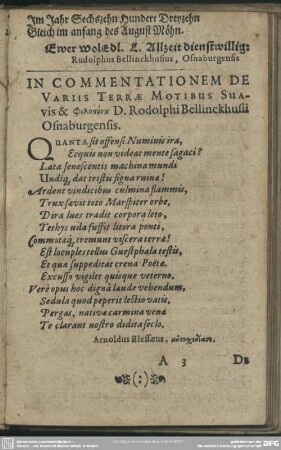 Im Jahr Sechszehn Hundert Dreyzehn
Gleich im anfang des August Möhn.
Ewer wolædl. L. Allzeit dienstwillig:
Rudolphus Bellinckhusius, Osnaburgensis
IN COMMENTATIONEM DE
VARIIS TERRÆ MOTIBUS SUA-
vis & Φιλοπόνυ D. Rodolphi Bellinckhusii
Osnaburgensis.
QUANTA sit offensi Numinis ira,
Ecquis non videat mente sagaci?
Lata senescentis machina mundi
Undiq; dat tristis signa ruinæ!
Ardent vindicibus culmina flammis,
Trux sævit toto Marspiter orbe,
Dira lues tradit corpora leto,
Tethys uda fuffit litora ponti,
Commotaq; tremunt viscera terræ!
Est locuples testis Guestphala testis,
Et quæ suppeditat crena Poëtæ.
Excusso vigilet quisque veterno,
Verè opus hoc dignâ laude vehendum,
Sedula quod peperit lectio vatis,
Pergas, nativæ carmina venæ
Te clarant nostro didita seclo.
Arnoldus Blessæus, αὐτοχιδίασε,
A 3
De